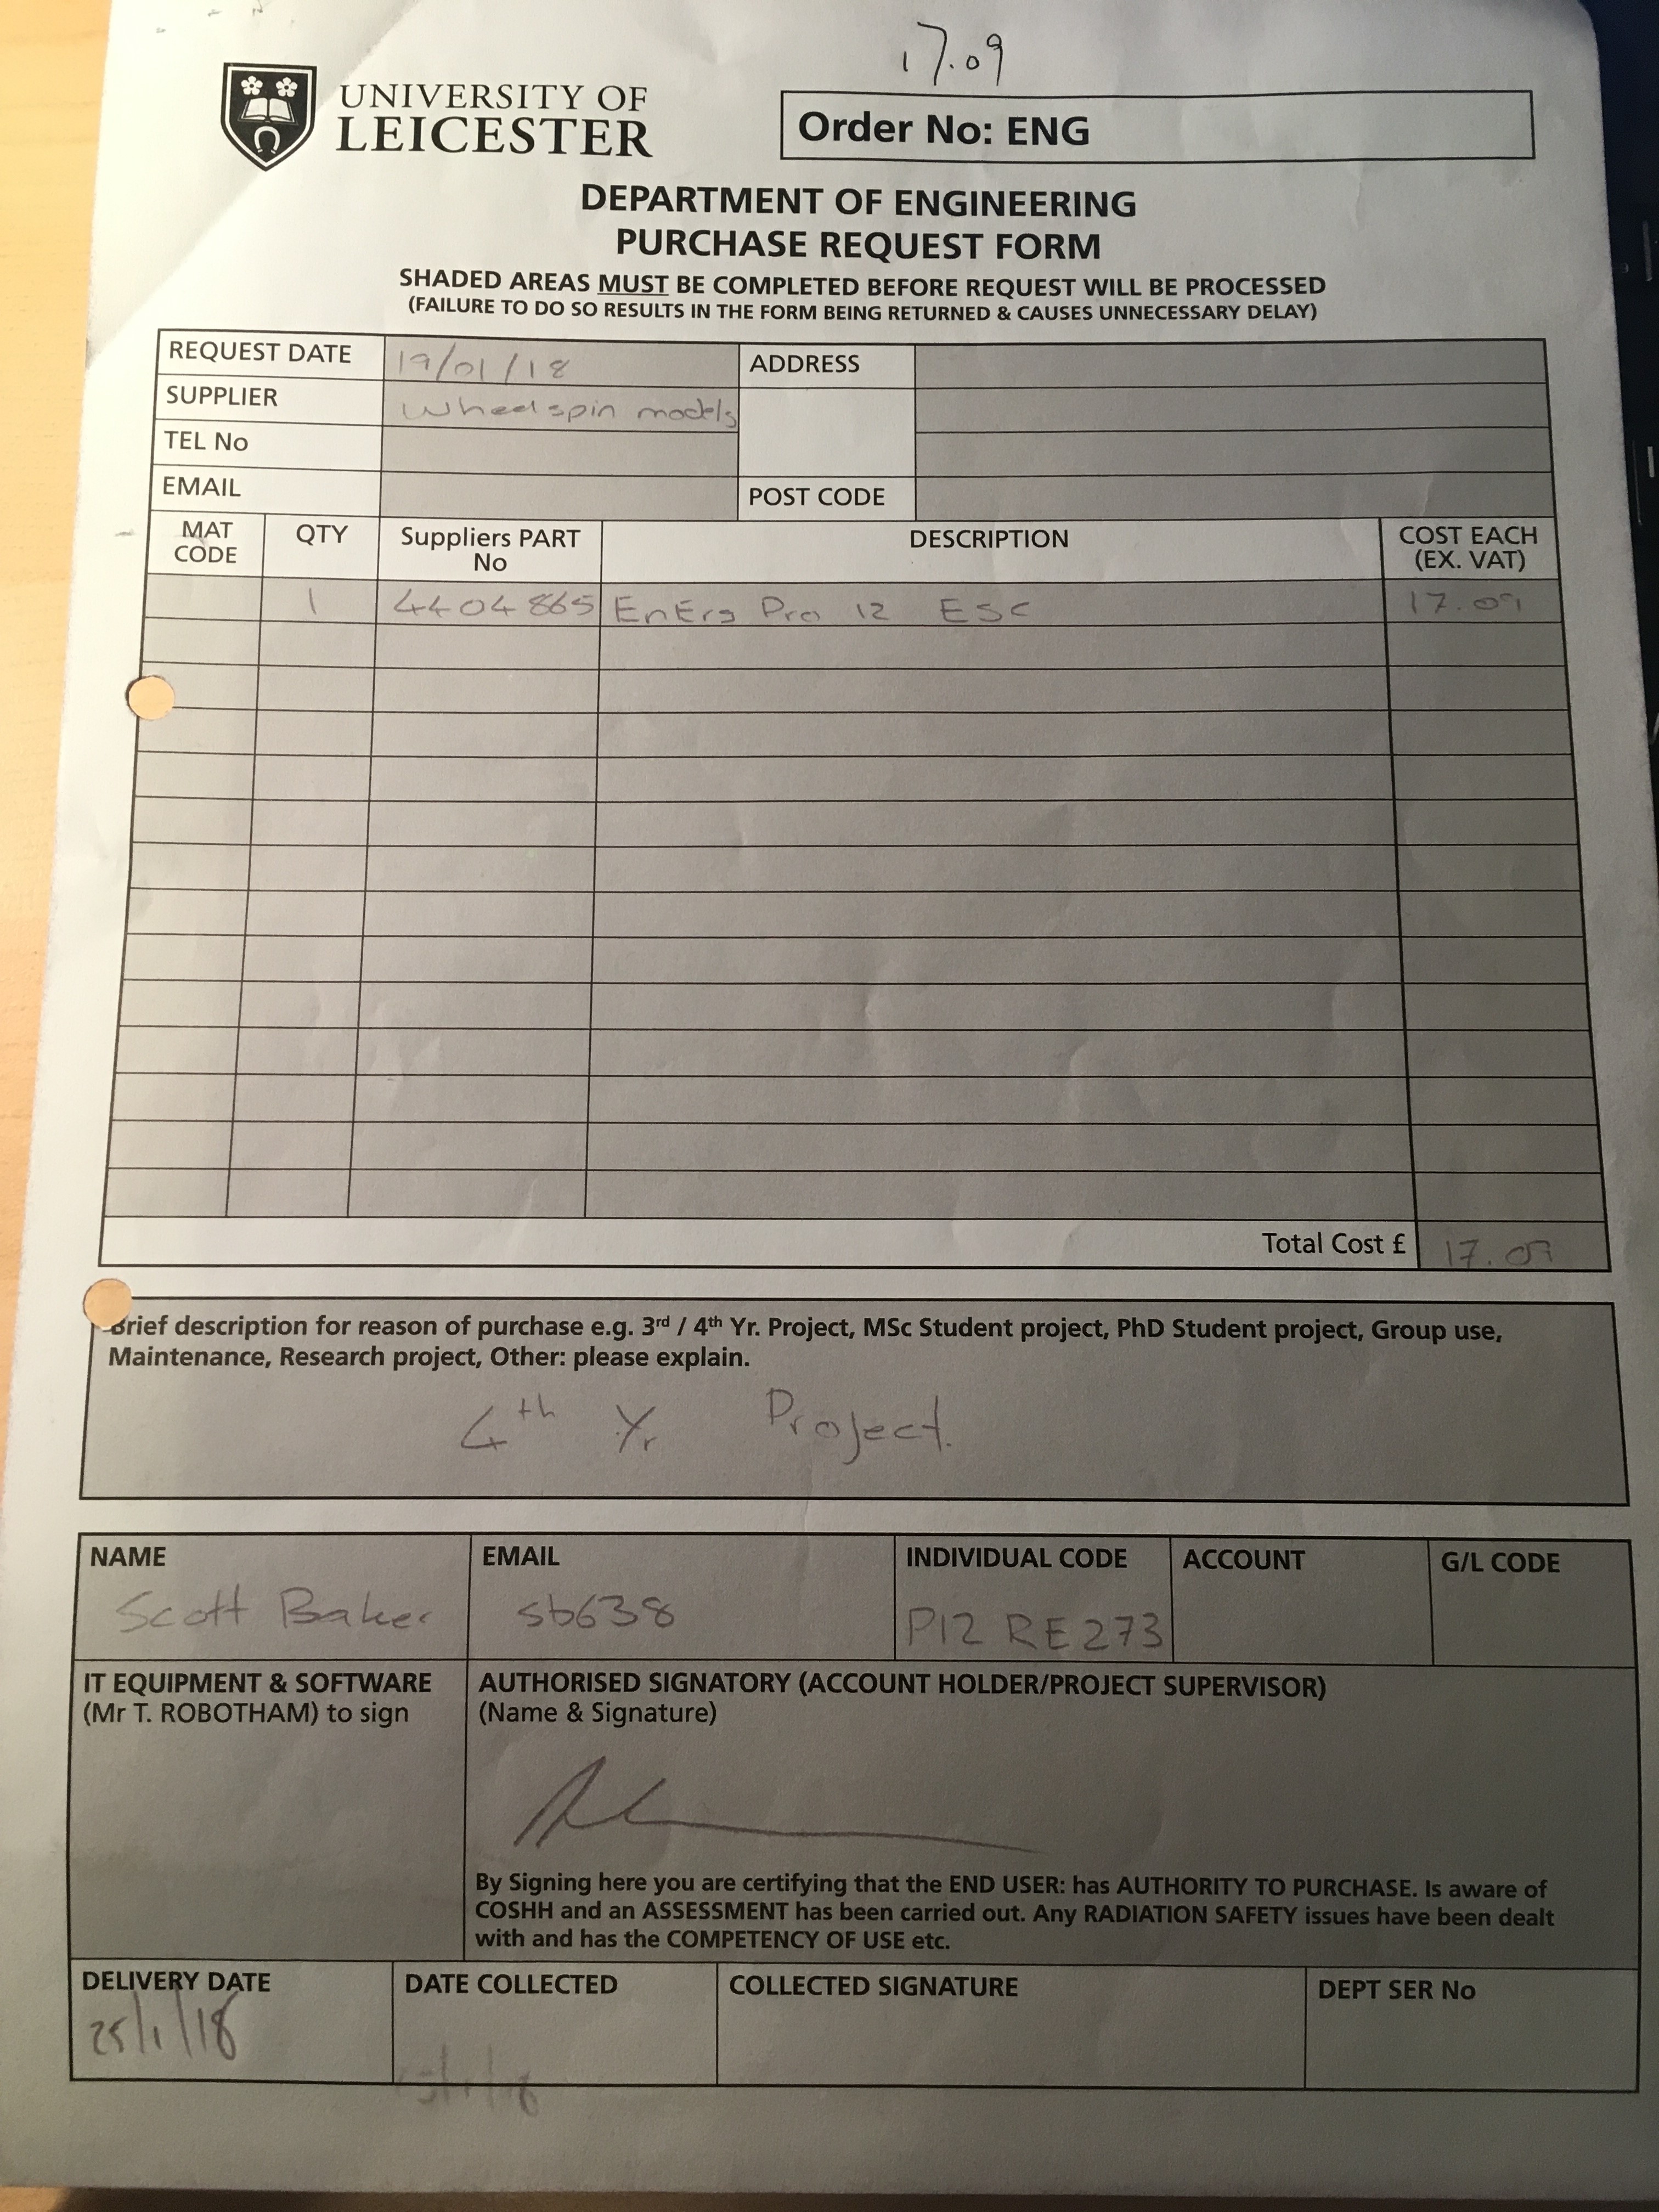 17.09
UNIVERSITY OF
LEICESTER
Order No: ENG
DEPARTMENT OF ENGINEERING
PURCHASE REQUEST FORM
SHADED AREAS MUST BE COMPLETED BEFORE REQUEST WILL BE PROCESSED
(FAILURE TO DO SO RESULTS IN THE FORM BEING RETURNED & CAUSES UNNECESSARY DELAY)
REQUEST DATE 19/01/18 ADDRESS
SUPPLIER Wheelspin models
TEL No
EMAIL POST CODE
MAT CODE QTY Suppliers PART No DESCRIPTION COST EACH (EX. VAT)
1 4404865 EnErg Pro 12 ESC 17.09
Total Cost £ 17.09
Brief description for reason of purchase e.g. 3rd / 4th Yr. Project, MSc Student project, PhD Student project, Group use,
Maintenance, Research project, Other: please explain.
4th Yr Project.
NAME EMAIL INDIVIDUAL CODE ACCOUNT G/L CODE
Scott Baker sb638 P12 RE273
IT EQUIPMENT & SOFTWARE
(Mr T. ROBOTHAM) to sign
AUTHORISED SIGNATORY (ACCOUNT HOLDER/PROJECT SUPERVISOR)
(Name & Signature)
By Signing here you are certifying that the END USER: has AUTHORITY TO PURCHASE. Is aware of
COSHH and an ASSESSMENT has been carried out. Any RADIATION SAFETY issues have been dealt
with and has the COMPETENCY OF USE etc.
DELIVERY DATE DATE COLLECTED COLLECTED SIGNATURE DEPT SER No
25/1/18